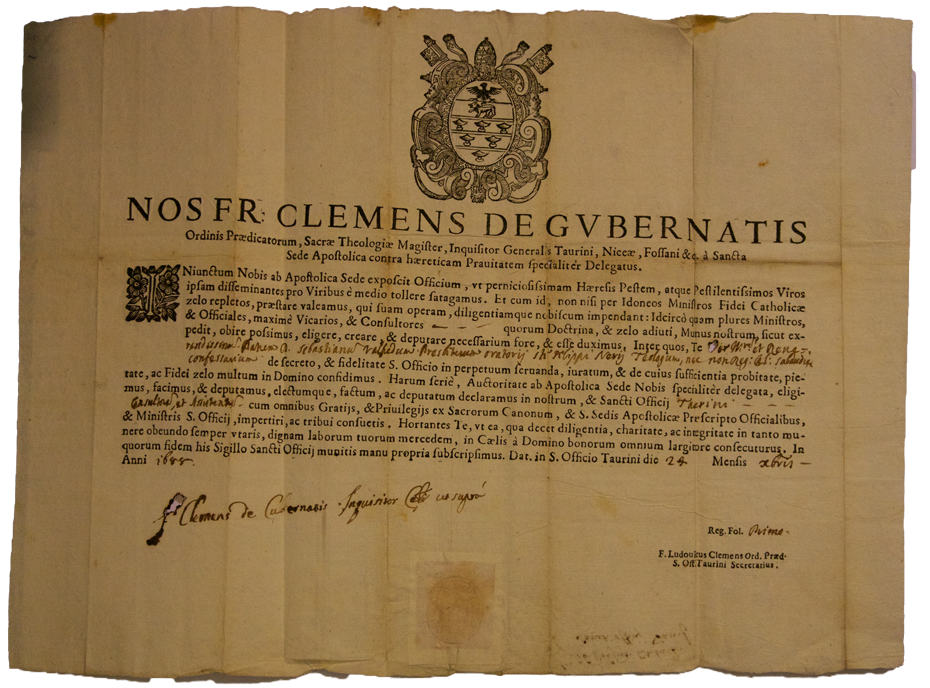 NOS FR: CLEMENS DE GVBERNATIS
Ordinis Prædicatorum, Sacræ Theologiæ Magister, Inquisitor Generalis Taurini, Niceæ, Fossani &c. à Sancta
Sede Apostolica contra hæreticam Prauitatem specialitèr Delegatus.
INiunctum Nobis ab Apostolica Sede exposcit Officium, vt perniciosissimam Hæresis Pestem, atque Pestilentissimos Viros
ipsam disseminantes pro Viribus è medio tollere satagamus. Et cum id, non nisi per Idoneos Ministros Fidei Catholicæ
zelo repletos, præstare valeamus, qui suam operam, diligentiamque nobiscum impendant: Idcircò quam plures Ministros,
& Officiales, maximè Vicarios, & Consultores — — — quorum Doctrina, & zelo adiuti, Munus nostrum, sicut ex-
pedit, obire possimus, eligere, creare, & deputare necessarium fore, & esse duximus. Inter quos, Te
Sebastianum Valfredum Presbiterum oratorij Philippi Nerij
confessarium de secreto, & fidelitate S. Officio in perpetuum seruanda, iuratum, & de cuius sufficientia probitate, pie-
tate, ac Fidei zelo multum in Domino confidimus. Harum seriè, Auctoritate ab Apostolica Sede Nobis specialitèr delegata, eligi-
mus, facimus, & deputamus, electumque, factum, ac deputatum declaramus in nostrum, & Sancti Officij
cum omnibus Gratijs, & Priuilegijs ex Sacrorum Canonum, & S. Sedis Apostolicæ Præscripto Officialibus,
& Ministris S. Officij, impertiri, ac tribui consuetis. Hortantes Te, vt ea, qua decet diligentia, charitate, ac integritate in tanto mu-
nere obeundo semper vtaris, dignam laborum tuorum mercedem, in Cælis à Domino bonorum omnium largitore consecuturus. In
quorum fidem his Sigillo Sancti Officij munitis manu propria subscripsimus. Dat. in S. Officio Taurini die 24 Mensis xbris —
Anni 1688.
fr Clemens de Gubernatis Inquisitor ut supra
Reg. Fol. Primo.
F. Ludouicus Clemens Ord. Præd.
S. Off. Taurini Secretarius.